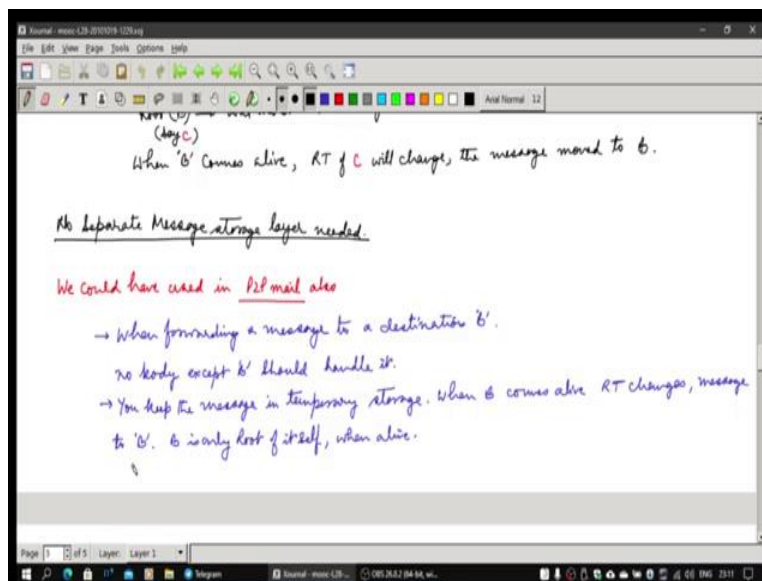 Xournal - mooc-L28-20101019-1229.xoj
File Edit View Page Tools Options Help
Arial Normal 12
Root (B)
(say C)
When 'B' comes alive, RT of C will change, the message moved to B.
No Separate Message storage layer needed.
We could have used in P2P mail also
→ When forwarding a message to a destination 'B'.
no body except 'B' should handle it.
→ You keep the message in temporary storage. When B comes alive RT changes, message
to 'B'. B is only Root of itself, when alive.
Page 3 of 5 Layer: Layer 1
Telegram Xournal - mooc-L28-... OBS 26.0.2 (64-bit, wi... ENG 23:11